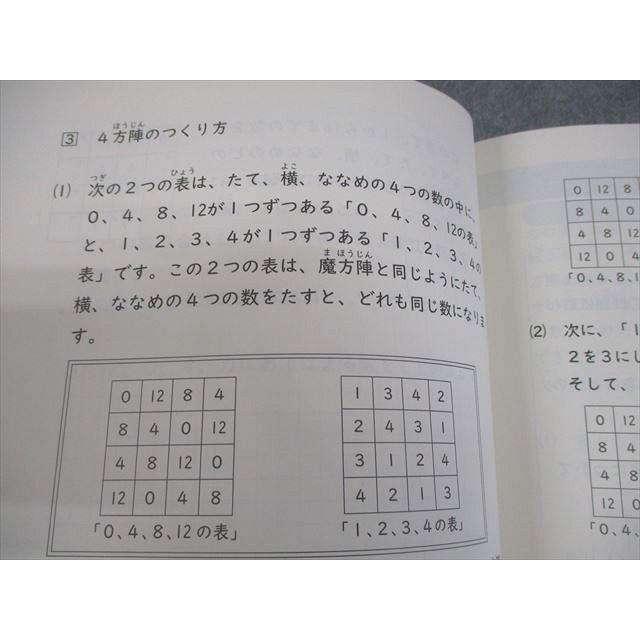 3 4方陣のつくり方
ほうじん
(1) 次の2つの表は、たて、横、ななめの4つの数の中に、
つぎ ひょう よこ
0、4、8、12が1つずつある「0、4、8、12の表」
と、1、2、3、4が1つずつある「1、2、3、4の
表」です。この2つの表は、魔方陣と同じようにたて、
まほうじん
横、ななめの4つの数をたすと、どれも同じ数になりま
す。
0 12 8 4
8 4 0 12
4 8 12 0
12 0 4 8
「0、4、8、12の表」
1 3 4 2
2 4 3 1
3 1 2 4
4 2 1 3
「1、2、3、4の表」
0 12 8
8 4 0
4 8 12
12 0 4
「0、4、8、12
(2) 次に、「1
2を3にし
そして、
0 12
8 4
4 8
12 0
「0、4、